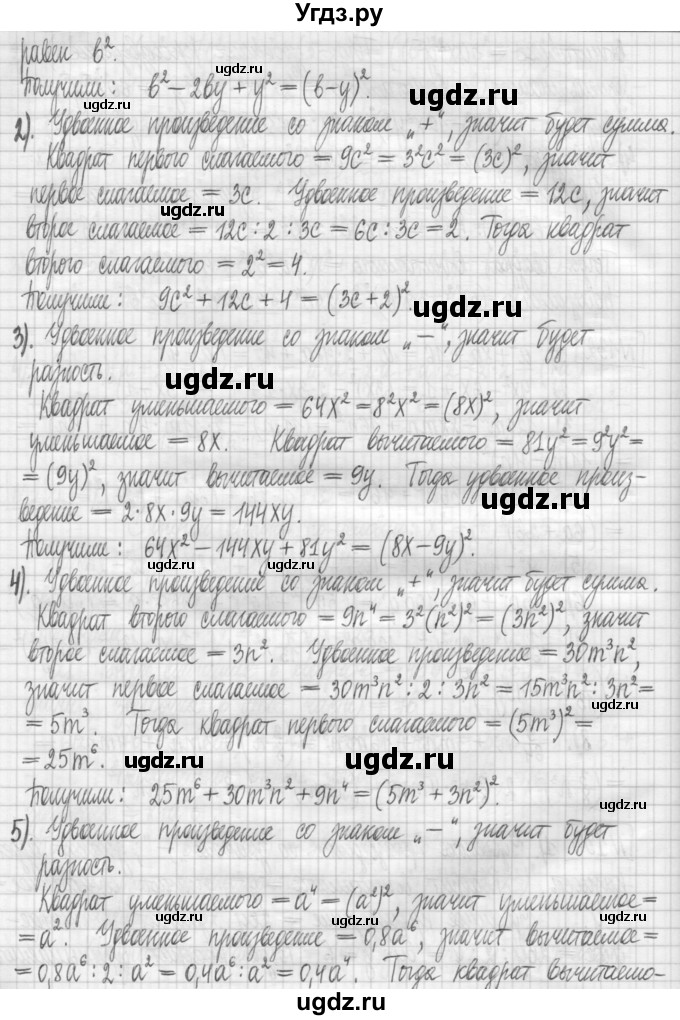 Угдз.ру
равен b².
Получили: b² − 2by + y² = (b−y)².
2). Удвоенное произведение со знаком „+“, значит будет сумма.
Квадрат первого слагаемого = 9c² = 3²c² = (3c)², значит
первое слагаемое = 3c. Удвоенное произведение = 12c, значит
второе слагаемое = 12c : 2 : 3c = 6c : 3c = 2. Тогда квадрат
второго слагаемого = 2² = 4.
Получили: 9c² + 12c + 4 = (3c+2)².
3). Удвоенное произведение со знаком „−“, значит будет
разность.
Квадрат уменьшаемого = 64x² = 8²x² = (8x)², значит
уменьшаемое = 8x. Квадрат вычитаемого = 81y² = 9²y² =
= (9y)², значит вычитаемое = 9y. Тогда удвоенное произ-
ведение = 2·8x·9y = 144xy.
Получили: 64x² − 144xy + 81y² = (8x−9y)².
4). Удвоенное произведение со знаком „+“, значит будет сумма.
Квадрат второго слагаемого = 9n⁴ = 3²(n²)² = (3n²)², значит
второе слагаемое = 3n². Удвоенное произведение = 30m³n²,
значит первое слагаемое = 30m³n² : 2 : 3n² = 15m³n² : 3n² =
= 5m³. Тогда квадрат первого слагаемого = (5m³)² =
= 25m⁶.
Получили: 25m⁶ + 30m³n² + 9n⁴ = (5m³ + 3n²)².
5). Удвоенное произведение со знаком „−“, значит будет
разность.
Квадрат уменьшаемого = a⁴ = (a²)², значит уменьшаемое =
= a². Удвоенное произведение = 0,8a⁶, значит вычитаемое =
= 0,8a⁶ : 2 : a² = 0,4a⁶ : a² = 0,4a⁴. Тогда квадрат вычитаемо-
ugdz.ru